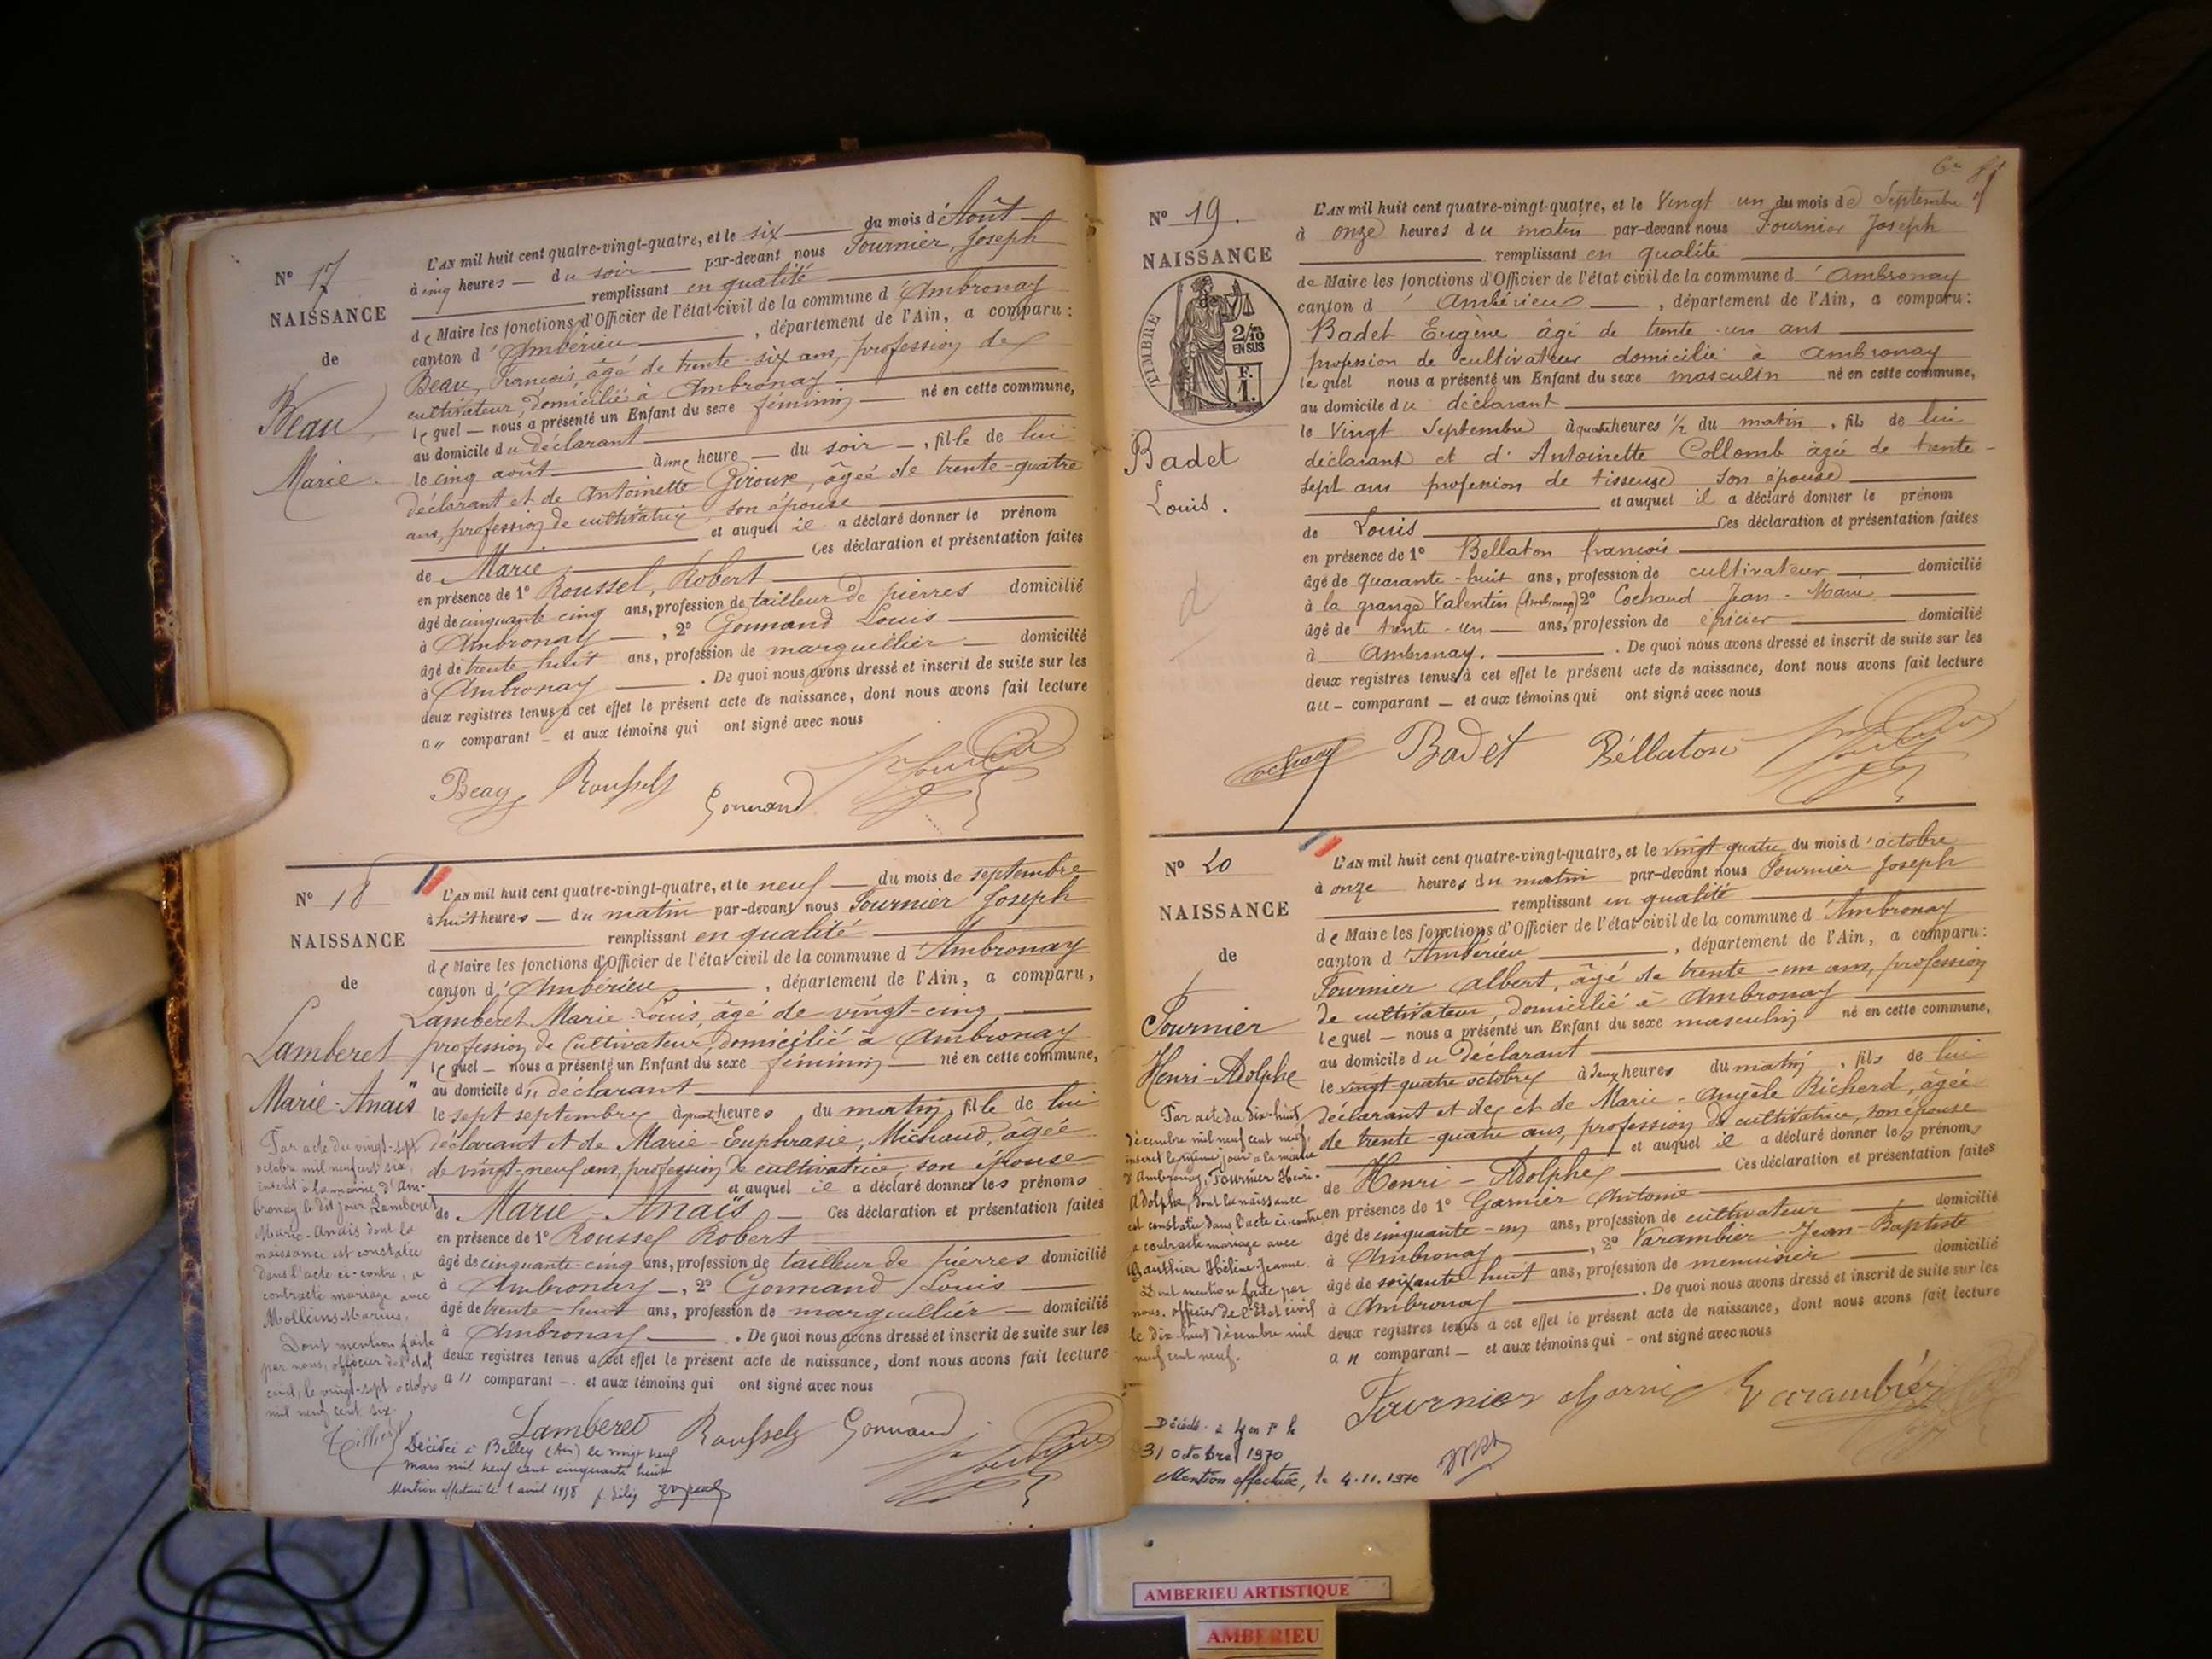 N° 17
NAISSANCE
de
Beau
Marie
L'AN mil huit cent quatre-vingt-quatre, et le six du mois d'Août
à cinq heures du soir par-devant nous Fournier, Joseph
remplissant en qualité
de Maire les fonctions d'Officier de l'état civil de la commune d'Ambronay
canton d'Ambérieu, département de l'Ain, a comparu:
Beau, François, âgé de trente-six ans, profession de
cultivateur, domicilié à Ambronay
lequel nous a présenté un Enfant du sexe féminin né en cette commune,
au domicile du déclarant
le cinq août à une heure du soir, fille de lui
déclarant et de Antoinette Giroux, âgée de trente-quatre
ans, profession de cultivatrice, son épouse
et auquel il a déclaré donner le prénom
de Marie Ces déclaration et présentation faites
en présence de 1° Roussel, Robert
âgé de cinquante cinq ans, profession de tailleur de pierres domicilié
à Ambronay, 2° Gonnand Louis
âgé de trente-huit ans, profession de marguillier domicilié
à Ambronay. De quoi nous avons dressé et inscrit de suite sur les
deux registres tenus à cet effet le présent acte de naissance, dont nous avons fait lecture
au comparant et aux témoins qui ont signé avec nous
Beau Roussel Gonnand
N° 18
NAISSANCE
de
Lamberet
Marie-Anaïs
Par acte du vingt-sept
octobre mil neuf cent six,
inscrit à la mairie d'Am-
bronay le dit jour Lamberet
Marie-Anaïs dont la
naissance est constatée
dans l'acte ci-contre, a
contracté mariage avec
Dont mention faite
par nous, officier de l'état
civil, le vingt-sept octobre
mil neuf cent six.
L'AN mil huit cent quatre-vingt-quatre, et le neuf du mois de septembre
à huit heures du matin par-devant nous Fournier Joseph
remplissant en qualité
de Maire les fonctions d'Officier de l'état civil de la commune d'Ambronay
canton d'Ambérieu, département de l'Ain, a comparu,
Lamberet Marie-Louis, âgé de vingt-cinq
profession de Cultivateur, domicilié à Ambronay
lequel nous a présenté un Enfant du sexe féminin né en cette commune,
au domicile du déclarant
le sept septembre à quatre heures du matin, fille de lui
déclarant et de Marie-Euphrasie, Michaud, âgée
de vingt-neuf ans, profession de cultivatrice, son épouse
et auquel il a déclaré donner les prénoms
de Marie-Anaïs Ces déclaration et présentation faites
en présence de 1° Roussel Robert
âgé de cinquante-cinq ans, profession de tailleur de pierres domicilié
à Ambronay, 2° Gonnand Louis
âgé de trente-huit ans, profession de marguillier domicilié
à Ambronay. De quoi nous avons dressé et inscrit de suite sur les
deux registres tenus à cet effet le présent acte de naissance, dont nous avons fait lecture
au comparant et aux témoins qui ont signé avec nous
Lamberet Roussel Gonnand
Décédée à Belley (Ain) le vingt neuf
mars mil neuf cent cinquante huit
Mention effectuée le 1 avril 1958
N° 19.
NAISSANCE
TIMBRE
2/10
EN SUS
F.
1.
Badet
Louis.
L'AN mil huit cent quatre-vingt-quatre, et le Vingt un du mois de Septembre
à onze heures du matin par-devant nous Fournier Joseph
remplissant en qualité
de Maire les fonctions d'Officier de l'état civil de la commune d'Ambronay
canton d'Ambérieu, département de l'Ain, a comparu:
Badet Eugène âgé de trente un ans
profession de cultivateur domicilié à Ambronay
lequel nous a présenté un Enfant du sexe masculin né en cette commune,
au domicile du déclarant
le Vingt Septembre à quatre heures 1/2 du matin, fils de lui
déclarant et d'Antoinette Collomb âgée de trente-
sept ans profession de tisseuse son épouse
et auquel il a déclaré donner le prénom
de Louis Ces déclaration et présentation faites
en présence de 1° Bellaton françois
âgé de quarante-huit ans, profession de cultivateur domicilié
à la grange Valentin (Ambronay) 2° Cochand Jean-Marie
âgé de trente-un ans, profession de épicier domicilié
à Ambronay. De quoi nous avons dressé et inscrit de suite sur les
deux registres tenus à cet effet le présent acte de naissance, dont nous avons fait lecture
au comparant et aux témoins qui ont signé avec nous
Badet Béllaton
N° 20
NAISSANCE
de
Fournier
Henri-Adolphe
Par acte du dix-huit
décembre mil neuf cent neuf,
inscrit le même jour à la mairie
d'Ambronay, Fournier Henri-
Adolphe, dont la naissance
est constatée dans l'acte ci-contre
a contracté mariage avec
Gauthier Hélène-Jeanne.
Dont mention faite par
nous, officier de l'Etat civil
le dix huit décembre mil
neuf cent neuf.
L'AN mil huit cent quatre-vingt-quatre, et le vingt-quatre du mois d'octobre
à onze heures du matin par-devant nous Fournier Joseph
remplissant en qualité
de Maire les fonctions d'Officier de l'état civil de la commune d'Ambronay
canton d'Ambérieu, département de l'Ain, a comparu:
Fournier Albert, âgé de trente-un ans, profession
de cultivateur, domicilié à Ambronay
lequel nous a présenté un Enfant du sexe masculin né en cette commune,
au domicile du déclarant
le vingt-quatre octobre à deux heures du matin, fils de lui
déclarant et de et de Marie-Angèle Richerd, âgée
de trente-quatre ans, profession de cultivatrice, son épouse
et auquel il a déclaré donner les prénoms
de Henri-Adolphe Ces déclaration et présentation faites
en présence de 1° Garnier Antoine
âgé de cinquante-un ans, profession de cultivateur domicilié
à Ambronay, 2° Varambier Jean-Baptiste
âgé de soixante-huit ans, profession de menuisier domicilié
à Ambronay. De quoi nous avons dressé et inscrit de suite sur les
deux registres tenus à cet effet le présent acte de naissance, dont nous avons fait lecture
au comparant et aux témoins qui ont signé avec nous
Fournier Garnier Varambier
Décédé à Lyon le
31 octobre 1970
Mention effectuée, le 4.11.1970
AMBERIEU ARTISTIQUE
AMBERIEU